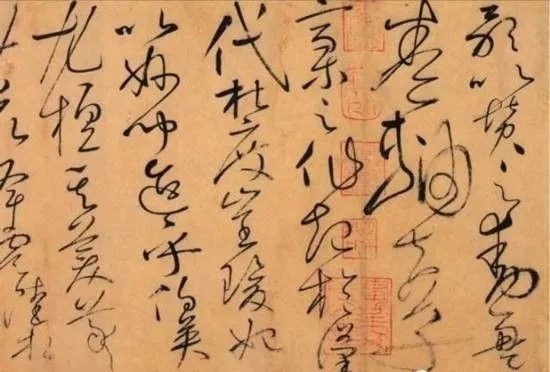 歌以贊之動盈
卷軸夫草
稿之作起於漢
代杜度崔瑗始
以妙聞迨乎伯英
尤擅其美羲
降虞陸相